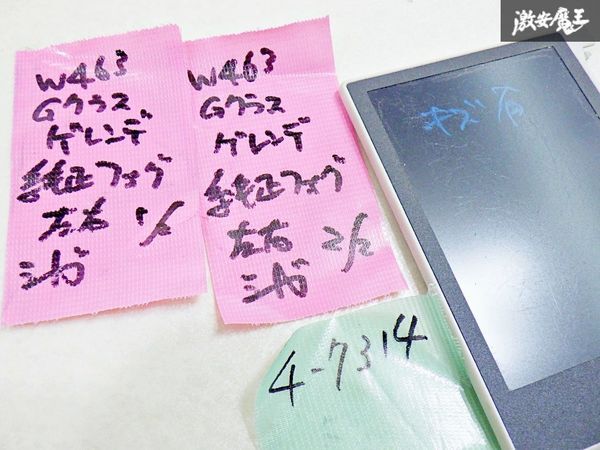 激安魔王
W463
Gクラス
ゲレンデ
純正フォグ
左右 1/2
シガ
W463
Gクラス
ゲレンデ
純正フォグ
左右 2/2
シガ
キズ有
4-7314